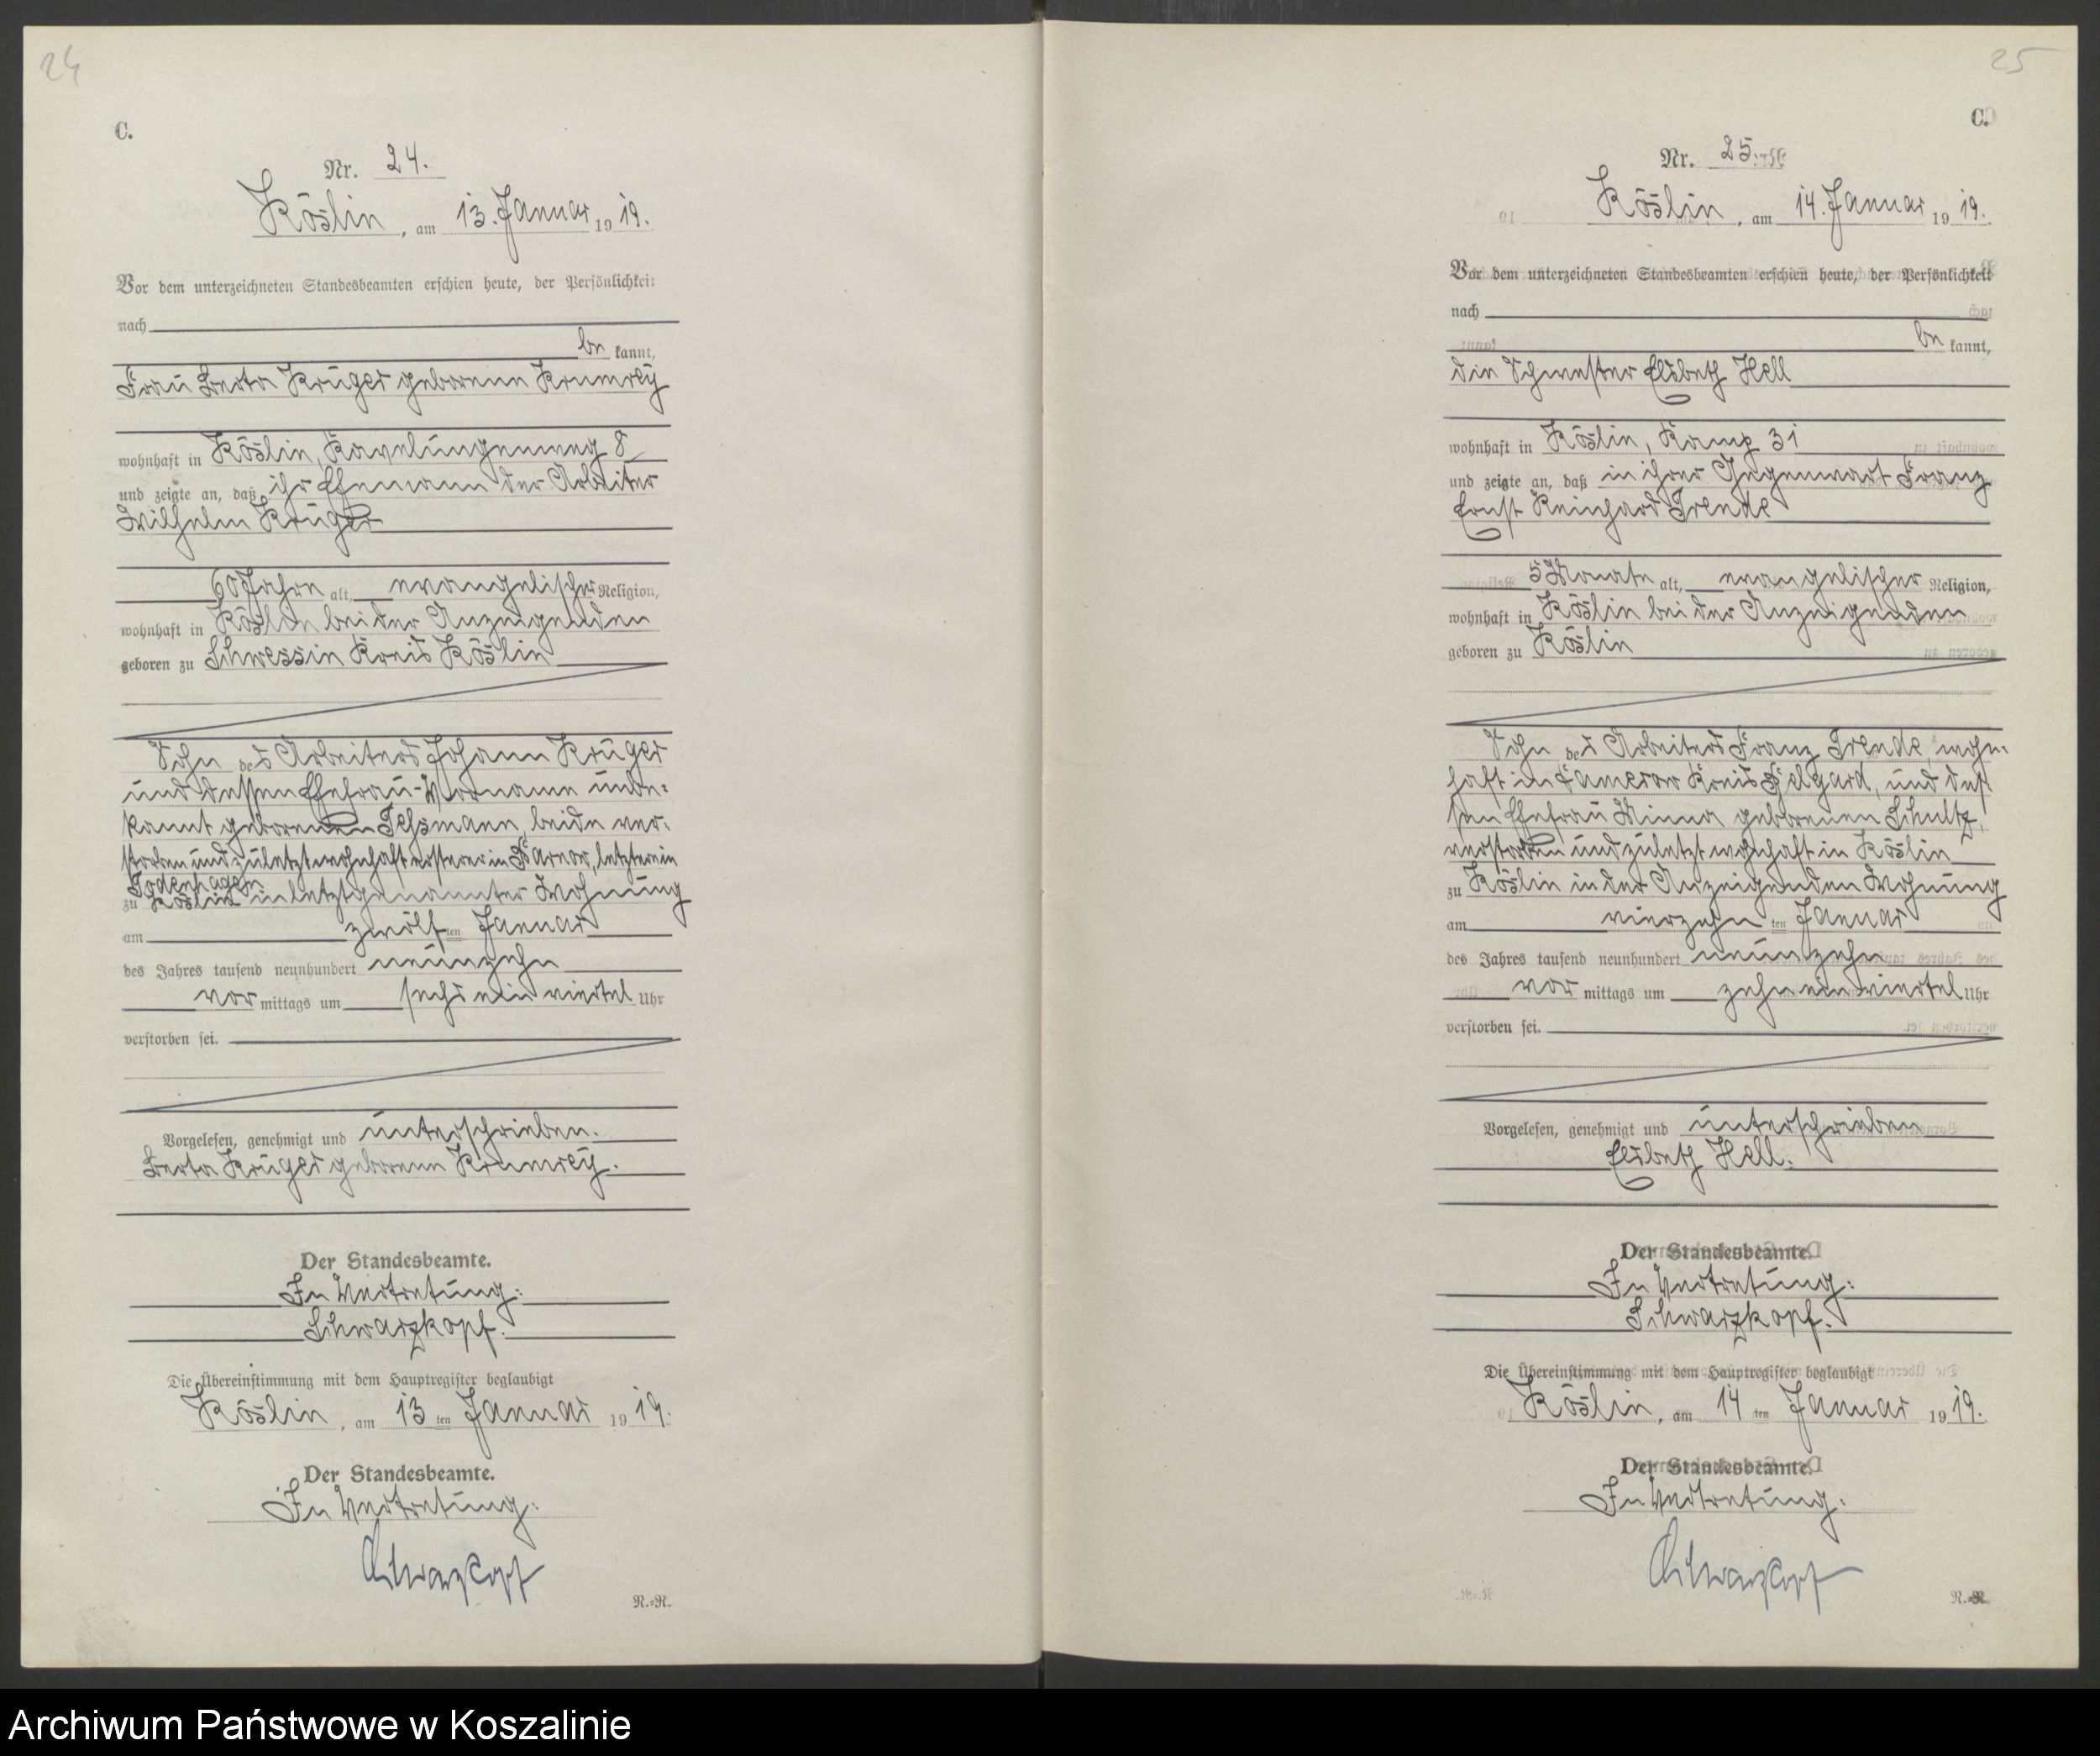 24
C.
Nr. 24.
Köslin, am 13. Januar 1919.
Vor dem unterzeichneten Standesbeamten erschien heute, der Persönlichkeit
nach
be kannt,
Frau Berta Krüger geborene Krumrey
wohnhaft in Köslin, Kavelungenweg 8
und zeigte an, daß ihr Ehemann der Arbeiter
Wilhelm Krüger
60 Jahre alt, evangelischer Religion,
wohnhaft in Köslin bei der Anzeigenden
geboren zu Schwessin Kreis Köslin
Sohn des Arbeiters Johann Krüger
und dessen Ehefrau - Vorname unbe-
kannt geborenen Tessmann, beide ver-
storben und zuletzt wohnhaft ersterer in Parnow, letztere in
Todenhagen
zu Köslin in letztgenannter Wohnung
am zwölf ten Januar
des Jahres tausend neunhundert neunzehn
vor mittags um sechs ein viertel Uhr
verstorben sei.
Vorgelesen, genehmigt und unterschrieben.
Berta Krüger geborene Krumrey.
Der Standesbeamte.
In Vertretung:
Schwarzkopf.
Die Übereinstimmung mit dem Hauptregister beglaubigt
Köslin, am 13 ten Januar 1919.
Der Standesbeamte.
In Vertretung:
Schwarzkopf
N.-R.
25
C.
Nr. 25.
Köslin, am 14. Januar 1919.
Vor dem unterzeichneten Standesbeamten erschien heute, der Persönlichkeit
nach
be kannt,
die Schwester Elsbeth Hell
wohnhaft in Köslin, Kamp 31
und zeigte an, daß in ihrer Gegenwart Franz
Ernst Reinhard Trende
5 Monate alt, evangelischer Religion,
wohnhaft in Köslin bei der Anzeigenden
geboren zu Köslin
Sohn des Arbeiters Franz Trende, wohn-
haft in Kamerow Kreis Belgard, und des-
sen Ehefrau Minna geborenen Schultz,
verstorben und zuletzt wohnhaft in Köslin
zu Köslin in der Anzeigenden Wohnung
am vierzehn ten Januar
des Jahres tausend neunhundert neunzehn
vor mittags um zehn ein viertel Uhr
verstorben sei.
Vorgelesen, genehmigt und unterschrieben
Elsbeth Hell.
Der Standesbeamte.
In Vertretung:
Schwarzkopf.
Die Übereinstimmung mit dem Hauptregister beglaubigt
Köslin, am 14 ten Januar 1919.
Der Standesbeamte.
In Vertretung:
Schwarzkopf
N.-R.
Archiwum Państwowe w Koszalinie